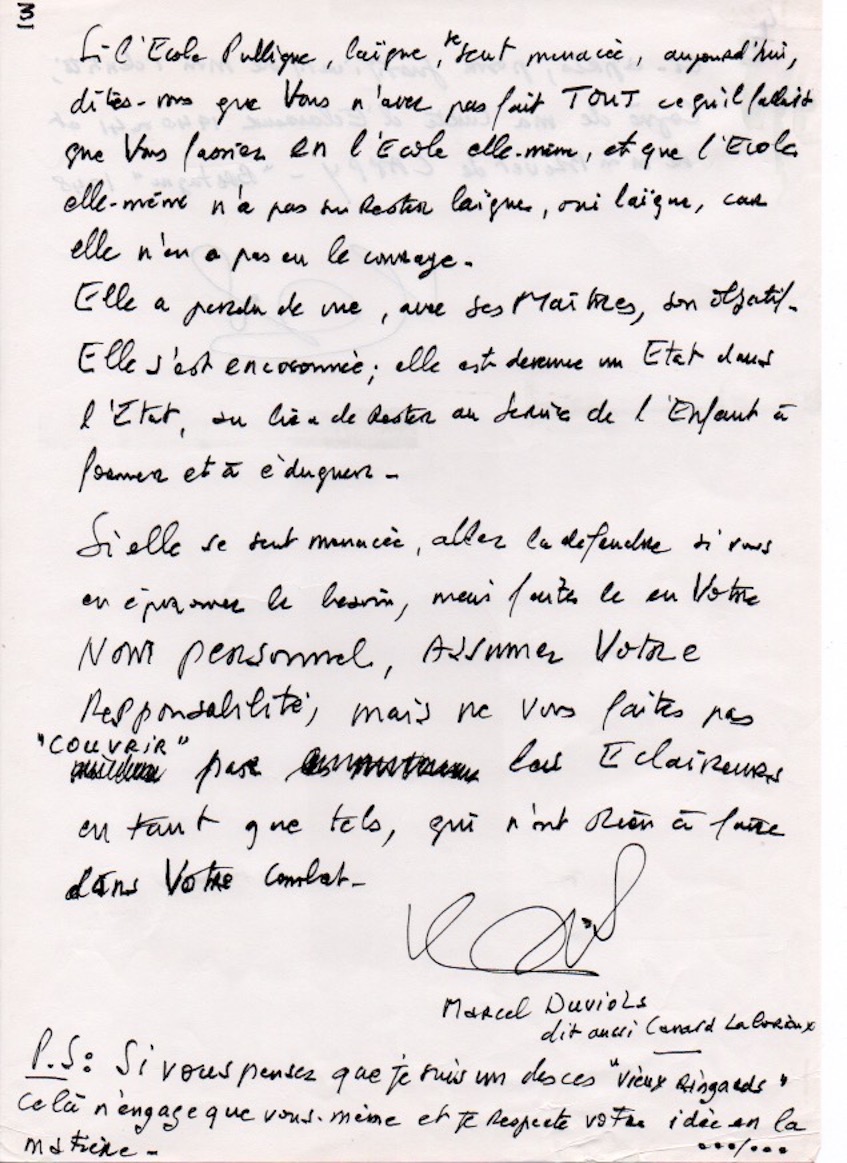 3
Si l'Ecole Publique, laïque, se sent menacée, aujourd'hui,
dites-vous que Vous n'avez pas fait TOUT ce qu'il fallait
que Vous fassiez en l'Ecole elle-même, et que l'Ecole
elle-même n'a pas su Rester laïque, oui laïque, car
elle n'en a pas eu le courage.
Elle a perdu de vue, avec ses Maîtres, son objectif.
Elle s'est encoconnée; elle est devenue un Etat dans
l'État, au lieu de Rester au Service de l'Enfant à
former et à éduquer.
Si elle se sent menacée, allez la défendre si vous
en éprouvez le besoin, mais faites le en Votre
Nom personnel, Assumez Votre
Responsabilité, mais ne vous faites pas
"COUVRIR" par les Eclaireurs
en tant que tels, qui n'ont Rien à faire
dans Votre Combat.
Marcel Duviols
dit aussi Canard Laborieux
P.S: Si vous pensez que je suis un des ces "vieux Ringards"
celà n'engage que vous-même et je Respecte votre idée en la
matière.
.../...